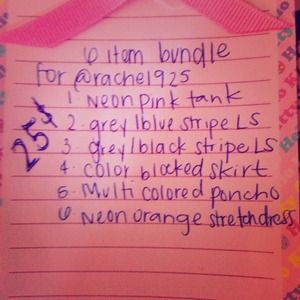 6 item bundle
for @rachel925
25¢
1 Neon pink tank
2. grey/blue stripe LS
3. grey/black stripe LS
4. color blocked skirt
5. Multi colored poncho
6 Neon orange stretch dress